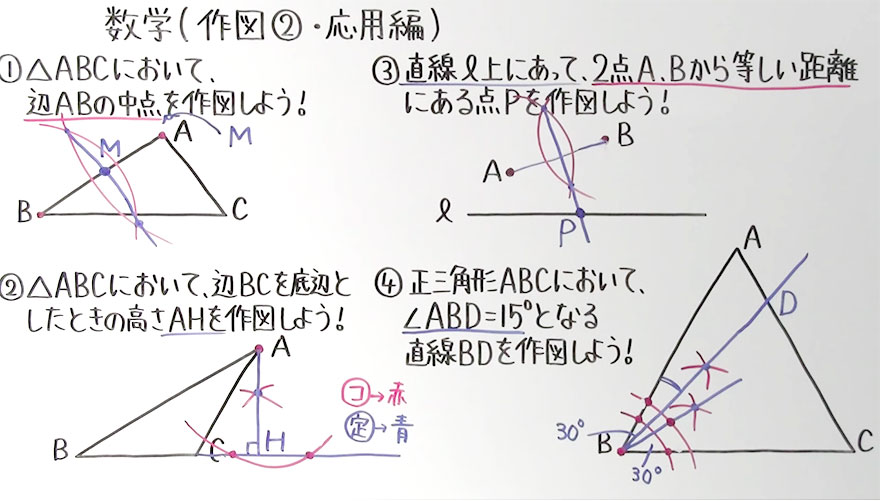 数学(作図②・応用編)
①△ABCにおいて、
辺ABの中点を作図しよう!
A
M
M
B
C
②△ABCにおいて、辺BCを底辺と
したときの高さAHを作図しよう!
A
B
C
H
コ→赤
定→青
③直線ℓ上にあって、2点A、Bから等しい距離
にある点Pを作図しよう!
B
A
ℓ
P
④正三角形ABCにおいて、
∠ABD=15°となる
直線BDを作図しよう!
A
D
30°
B
30°
C